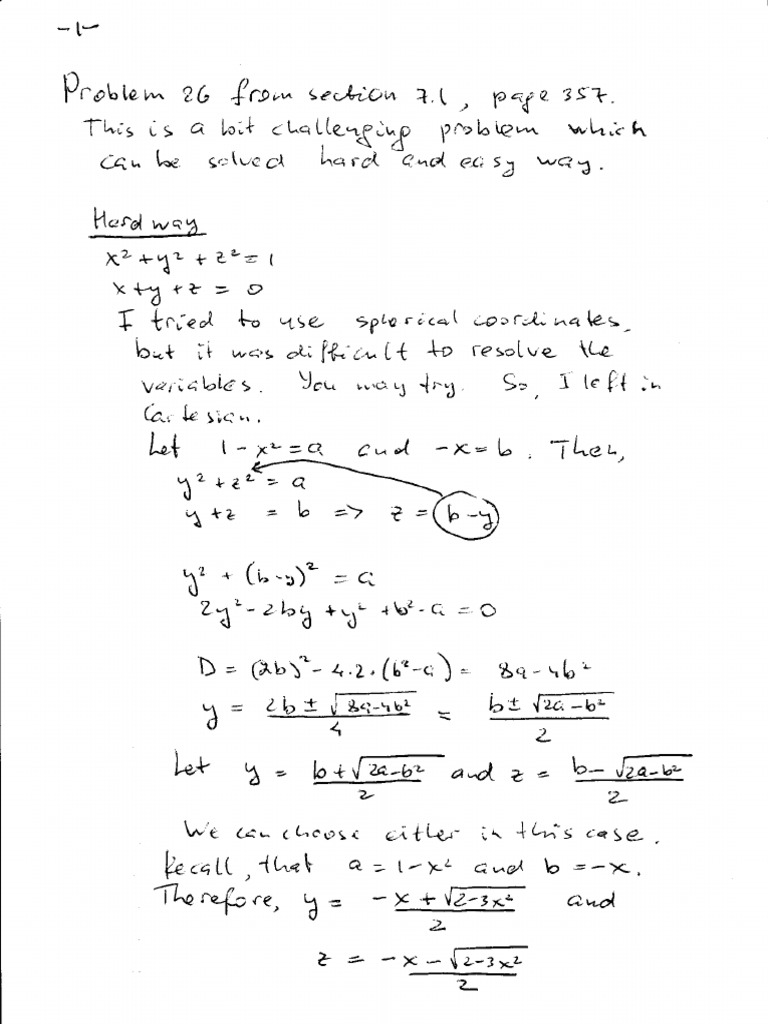 -1-
Problem 26 from section 7.1, page 357.
This is a bit challenging problem which
can be solved hard and easy way.
Hard way
x² + y² + z² = 1
x + y + z = 0
I tried to use spherical coordinates,
but it was difficult to resolve the
variables. You may try. So, I left in
Cartesian.
Let 1 - x² = a and -x = b. Then,
y² + z² = a
y + z = b => z = b - y
y² + (b - y)² = a
2y² - 2by + y² + b² - a = 0
D = (2b)² - 4·2·(b² - a) = 8a - 4b²
y = (2b ± √(8a - 4b²))/4 = (b ± √(2a - b²))/2
Let y = (b + √(2a - b²))/2 and z = (b - √(2a - b²))/2
We can choose either in this case.
Recall, that a = 1 - x² and b = -x.
Therefore, y = (-x + √(2 - 3x²))/2 and
z = (-x - √(2 - 3x²))/2